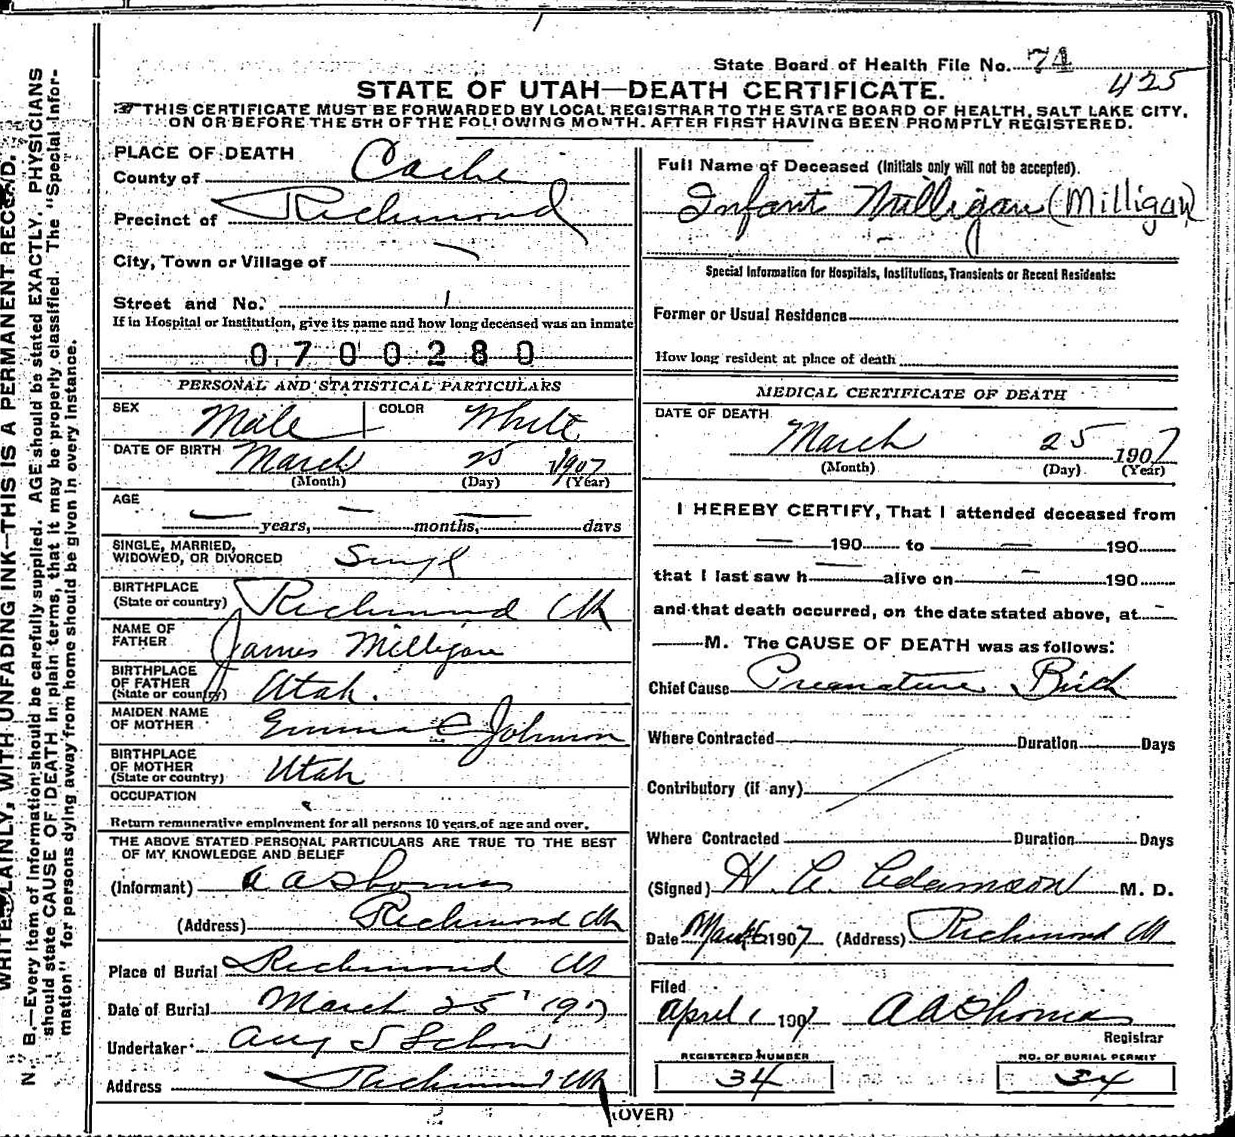 State Board of Health File No. 74
425
STATE OF UTAH—DEATH CERTIFICATE.
THIS CERTIFICATE MUST BE FORWARDED BY LOCAL REGISTRAR TO THE STATE BOARD OF HEALTH, SALT LAKE CITY,
ON OR BEFORE THE 5TH OF THE FOLLOWING MONTH. AFTER FIRST HAVING BEEN PROMPTLY REGISTERED.
WRITE PLAINLY, WITH UNFADING INK—THIS IS A PERMANENT RECORD.
N. B.—Every item of information should be carefully supplied. AGE should be stated EXACTLY. PHYSICIANS
should state CAUSE OF DEATH in plain terms, that it may be properly classified. The "Special Infor-
mation" for persons dying away from home should be given in every instance.
PLACE OF DEATH
County of Cache
Precinct of Richmond
City, Town or Village of
Street and No.
If in Hospital or Institution, give its name and how long deceased was an inmate
0700280
PERSONAL AND STATISTICAL PARTICULARS
SEX Male COLOR White
DATE OF BIRTH March 25 1907
(Month) (Day) (Year)
AGE
— years, — months, — days
SINGLE, MARRIED,
WIDOWED, OR DIVORCED Singl
BIRTHPLACE
(State or country) Richmond Ut
NAME OF
FATHER James Milligan
BIRTHPLACE
OF FATHER
(State or country) Utah.
MAIDEN NAME
OF MOTHER Emma E Johnson
BIRTHPLACE
OF MOTHER
(State or country) Utah
OCCUPATION
Return remunerative employment for all persons 10 years of age and over.
THE ABOVE STATED PERSONAL PARTICULARS ARE TRUE TO THE BEST
OF MY KNOWLEDGE AND BELIEF
(Informant) A A Thomas
(Address) Richmond Ut
Place of Burial Richmond Ut
Date of Burial March 25 1907
Undertaker Aug S Schow
Address Richmond Ut
Full Name of Deceased (Initials only will not be accepted).
Infant Milligan (Milligan)
Special Information for Hospitals, Institutions, Transients or Recent Residents:
Former or Usual Residence
How long resident at place of death
MEDICAL CERTIFICATE OF DEATH
DATE OF DEATH
March 25 1907
(Month) (Day) (Year)
I HEREBY CERTIFY, That I attended deceased from
— 190 to — 190
that I last saw h — alive on — 190
and that death occurred, on the date stated above, at —
— M. The CAUSE OF DEATH was as follows:
Chief Cause Premature Birth
Where Contracted Duration Days
Contributory (if any)
Where Contracted Duration Days
(Signed) H. C. Adamson M. D.
Date 1907 (Address) Richmond Ut
Filed
April 1 1907 A A Thomas
Registrar
REGISTERED NUMBER
34
NO. OF BURIAL PERMIT
34
(OVER)